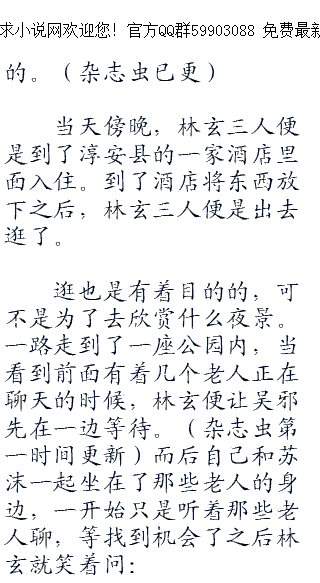 求小说网欢迎您！官方QQ群59903088 免费最新
的。（杂志虫已更）
当天傍晚，林玄三人便
是到了淳安县的一家酒店里
面入住。到了酒店将东西放
下之后，林玄三人便是出去
逛了。
逛也是有着目的的，可
不是为了去欣赏什么夜景。
一路走到了一座公园内，当
看到前面有着几个老人正在
聊天的时候，林玄便让吴邪
先在一边等待。（杂志虫第
一时间更新）而后自己和苏
沫一起坐在了那些老人的身
边，一开始只是听着那些老
人聊，等找到机会了之后林
玄就笑着问：